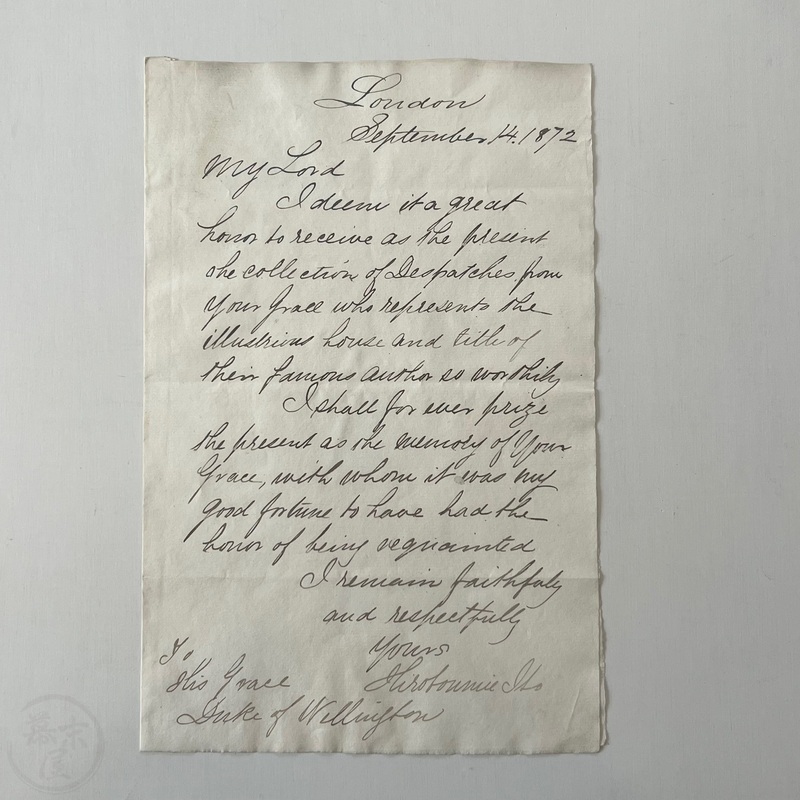 London
September, 14. 1872
My Lord
I deem it a great
honor to receive as the present
the collection of Despatches from
Your Grace who represents the
illustrious house and title of
their famous author so worthily
I shall for ever prize
the present as the memory of Your
Grace, with whom it was my
good fortune to have had the
honor of being acquainted
I remain faithfuly
and respectfully
Yours
Hirobumie Ito
To
His Grace
Duke of Wellington